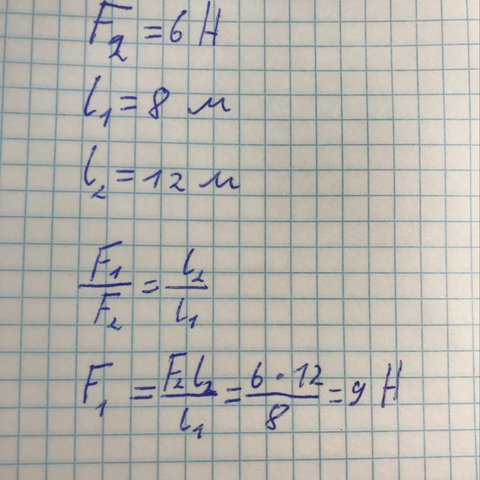 F₂ = 6 Н
l₁ = 8 м
l₂ = 12 м
F₁/F₂ = l₂/l₁
F₁ = F₂l₂/l₁ = 6 · 12/8 = 9 Н